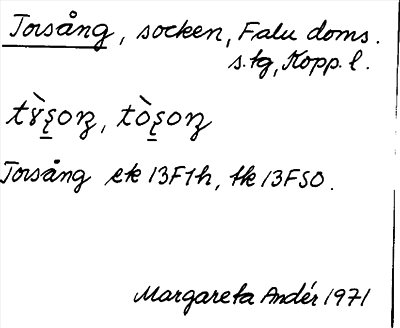 Torsång, socken, Falu doms.
s.tg, Kopp. l.
Torsång ek 13F1h, tk 13FSO.
Margareta Andér 1971